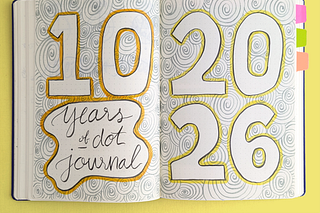 10
years
of dot
journal
20
26